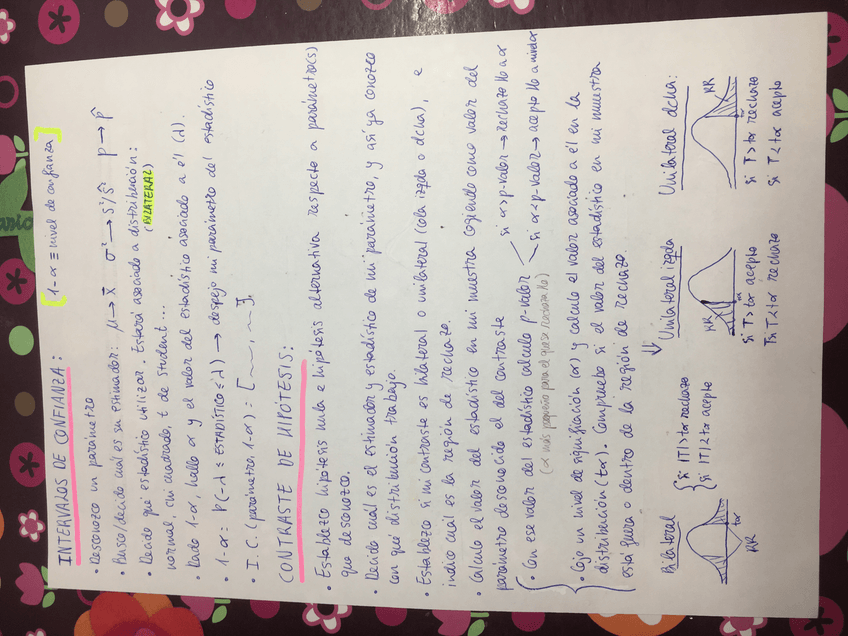 INTERVALOS DE CONFIANZA: [1-α ≡ nivel de confianza]
• Desconozco un parámetro
• Busco/decido cuál es su estimador: μ → x̄ σ² → s²/ŝ² p → p̂
• Decido qué estadístico utilizar. Estará asociado a distribución:
normal, chi cuadrado, t de Student... (BILATERAL)
• Dado 1-α, hallo α y el valor del estadístico asociado a él (λ).
• 1-α = P(-λ ≤ ESTADÍSTICO ≤ λ) → despejo mi parámetro del estadístico
• I.C. (parámetro, 1-α) = [~, ~].
CONTRASTE DE HIPÓTESIS:
• Establezco hipótesis nula e hipótesis alternativa respecto a parámetro(s)
que desconozco.
• Decido cuál es el estimador y estadístico de mi parámetro, y así ya conozco
con qué distribución trabajo.
• Establezco si mi contraste es bilateral o unilateral (cola izqda o dcha), e
indico cuál es la región de rechazo.
• Calculo el valor del estadístico en mi muestra cogiendo como valor del
parámetro desconocido el del contraste
• Con ese valor del estadístico calculo p-valor si α > p-valor → rechazo H₀ a α
si α < p-valor → acepto H₀ a nivel α
(α más pequeño para el que se rechaza H₀)
• Cojo un nivel de significación (α) y calculo el valor asociado a él en la
distribución (tα). Compruebo si el valor del estadístico en mi muestra
está fuera o dentro de la región de rechazo.
Bilateral
si |T| > tα rechazo
si |T| < tα acepto
RR
tα
Unilateral izqda
RR
si T > tα acepto
si T < tα rechazo
Unilateral dcha:
RR
tα
si T > tα rechazo
si T < tα acepto